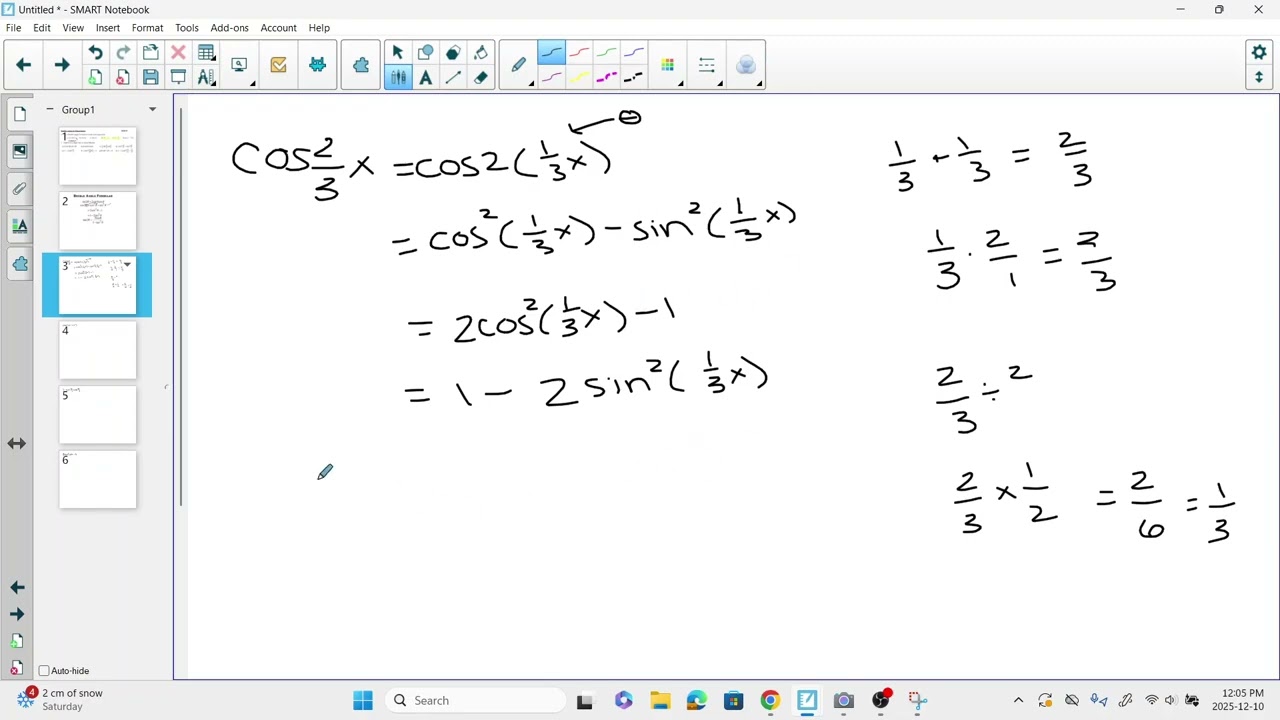 Untitled * - SMART Notebook
File Edit View Insert Format Tools Add-ons Help
Group1
1
2
3
4
5
6
Auto-hide
cos 2/3 x = cos2(1/3 x) ← θ
= cos²(1/3 x) - sin²(1/3 x)
= 2cos²(1/3 x) - 1
= 1 - 2 sin²(1/3 x)
1/3 + 1/3 = 2/3
1/3 · 2/1 = 2/3
2/3 ÷ 2
2/3 × 1/2 = 2/6 = 1/3
4
2 cm of snow
Saturday
Search
12:05 PM
2025-12-10